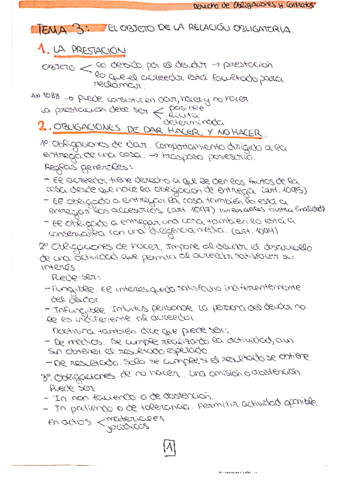 Derecho de Obligaciones y Contratos
TEMA 3: EL OBJETO DE LA RELACIÓN OBLIGATORIA.
1. LA PRESTACIÓN
OBJETO < lo debido por el deudor → prestación
lo que el acreedor está facultado para
reclamar.
Art 1088 → puede consistir en dar, hacer y no hacer.
La prestación debe ser < posible
lícita
determinada
2. OBLIGACIONES DE DAR, HACER, Y NO HACER.
1º. Obligaciones de dar. Comportamiento dirigido a la
entrega de una cosa. → traspaso posesorio.
Reglas generales:
- El acreedor tiene derecho a que se den los frutos de la
cosa desde que nace la obligación de entrega (art. 1095)
- El obligado a entregar la cosa también lo está a
entregar los accesorios (art. 1097)
- El obligado a entregar una cosa también lo está a
conservarla con una diligencia media. (art. 1094)
2º Obligaciones de hacer. Impone al deudor el desarrollo
de una actividad que permita al acreedor satisfacer su
interés
Puede ser:
- Fungible. El interés queda satisfecho indiferentemente
del deudor.
- Infungible. Intuitus personae la persona del deudor no
le es indiferente al acreedor.
Doctrina también dice que puede ser:
- De medios. Se cumple realizando la actividad, aun
sin obtener el resultado esperado.
- De resultado. Solo se cumple si el resultado se obtiene.
3º. Obligaciones de no hacer. Una omisión o abstención
Puede ser
- In non faciendo o de abstención.
- In patiendo o de tolerancia. Permitir actividad
En actos < materiales
jurídicos
1